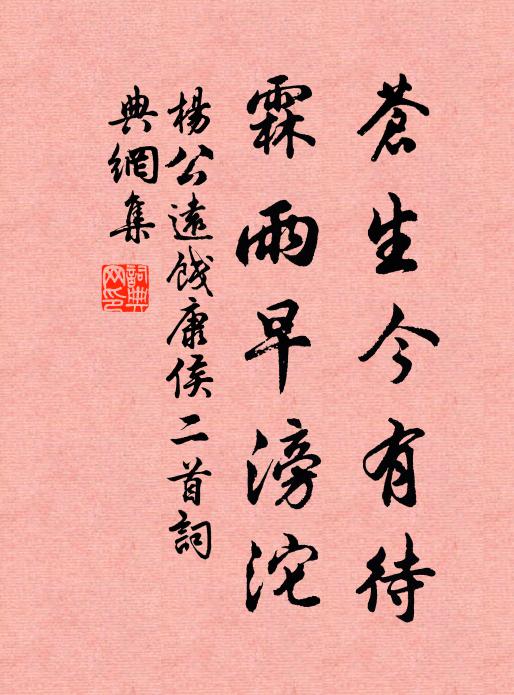 蒼生今有待
霖雨早滂沱
楊公遠餞康侯二首詞
典網集
詞典網印